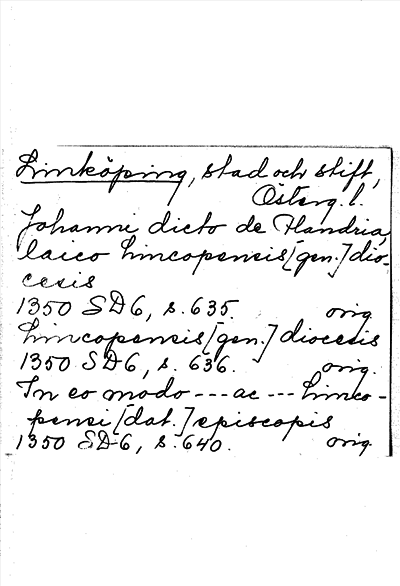 Linköping, stad och stift,
Österg. l.
Johanni dicto de Flandria
laico Lincopensis [gen.] dio-
cesis
1350 SD 6, s. 635. orig.
Lincopensis [gen.] diocesis
1350 SD 6, s. 636. orig.
In eo modo --- ac --- Linco-
pensi [dat.] episcopis
1350 SD 6, s. 640. orig.